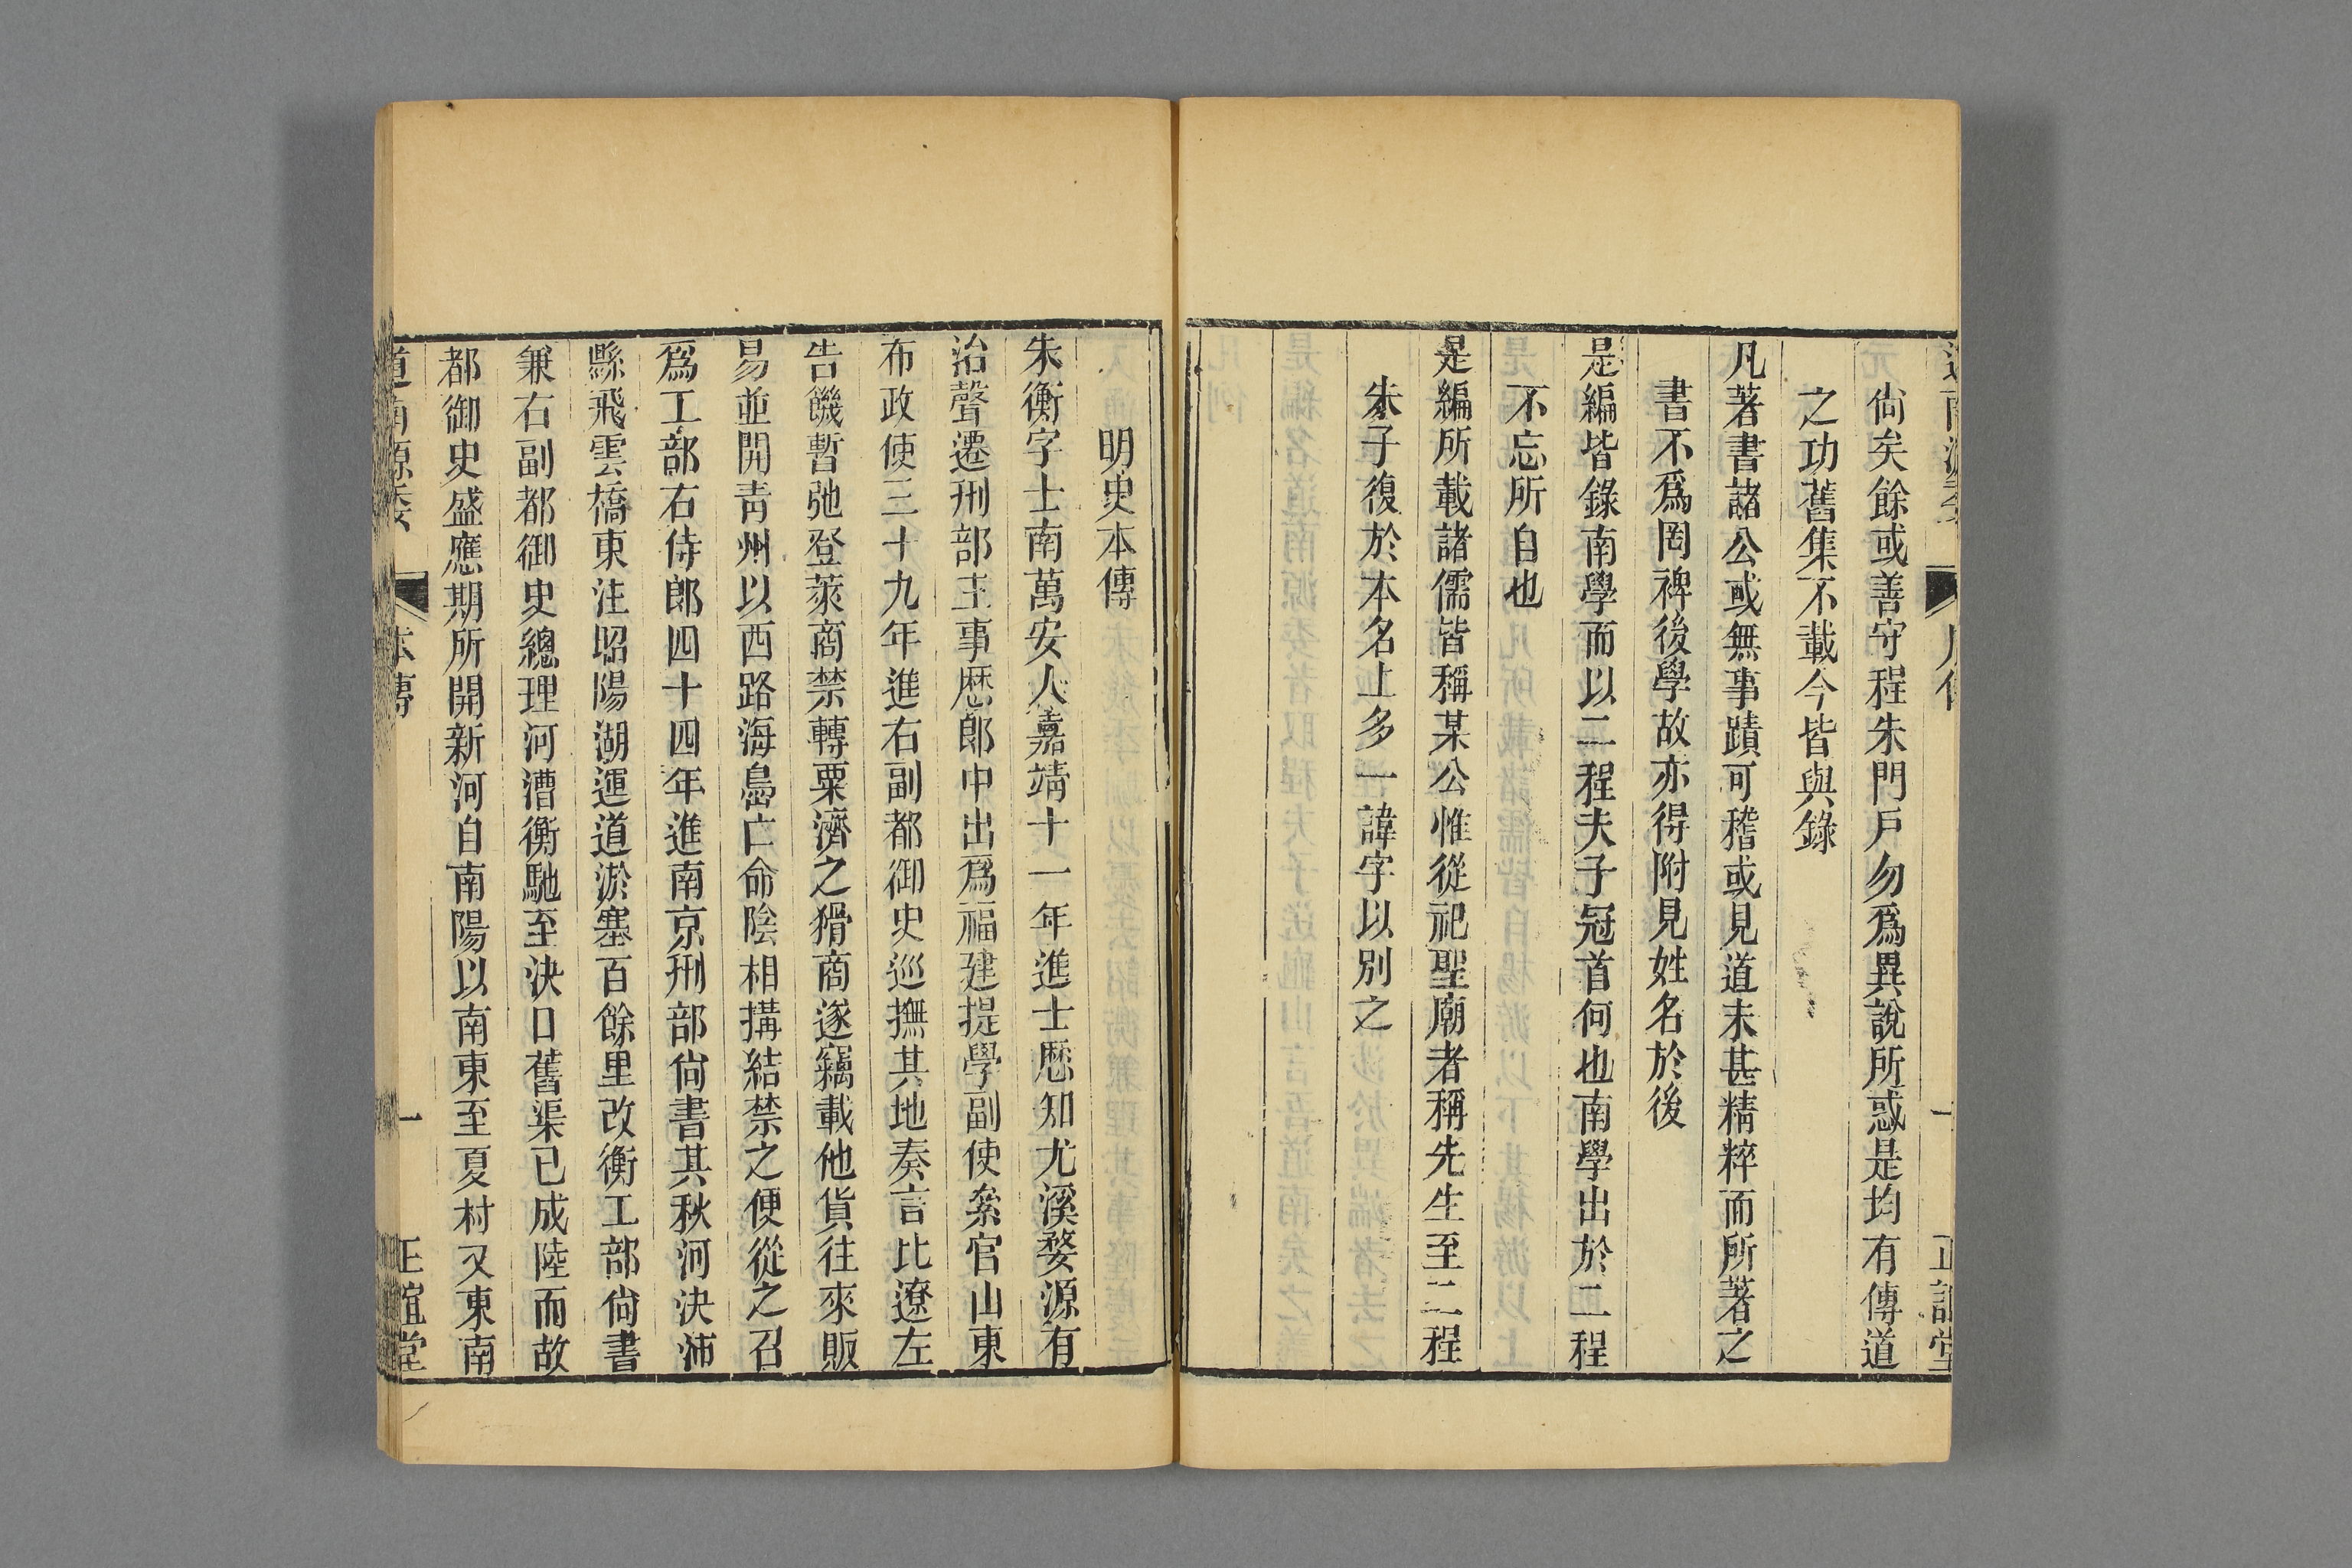 尙矣餘或善守程朱門戶勿爲異說所惑是均有傳道
之功舊集不載今皆與錄
凡著書諸公或無事蹟可稽或見道未甚精粹而所著之
書不爲罔裨後學故亦得附見姓名於後
是編皆錄南學而以二程夫子冠首何也南學出於二程
不忘所自也
是編所載諸儒皆稱某公惟從祀聖廟者稱先生至二程
朱子復於本名上多一諱字以別之
明史本傳
朱衡字士南萬安人嘉靖十一年進士歷知尤溪婺源有
治聲遷刑部主事歷郎中出爲福建提學副使絫官山東
布政使三十九年進右副都御史巡撫其地奏言比遼左
告饑暫弛登萊商禁轉粟濟之猾商遂竊載他貨往來販
易並開靑州以西路海島亡命陰相搆結禁之便從之召
爲工部右侍郎四十四年進南京刑部尙書其秋河決沛
縣飛雲橋東注昭陽湖運道淤塞百餘里改衡工部尙書
兼右副都御史總理河漕衡馳至決口舊渠已成陸而故
都御史盛應期所開新河自南陽以南東至夏村又東南
道南源委 本傳 一 正誼堂